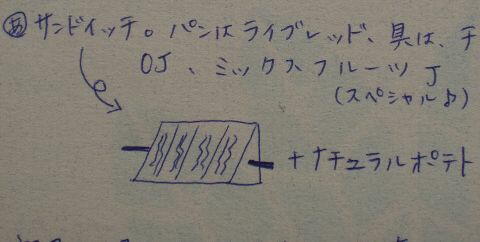 あ サンドイッチ。パンはライブレッド、具は、チ
OJ、ミックスフルーツJ
(スペシャル♪)
+ナチュラルポテト